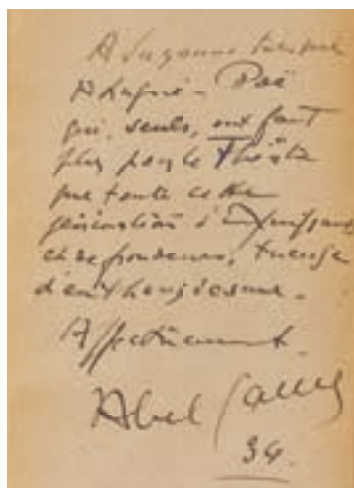 A Suzanne Després
A Lugné-Poë
qui, seuls, ont fait
plus pour le théâtre
que toute cette
génération d'impuissants
et de frondeurs, tueuse
d'enthousiasme.
Affectueusement
Abel Gance
34.